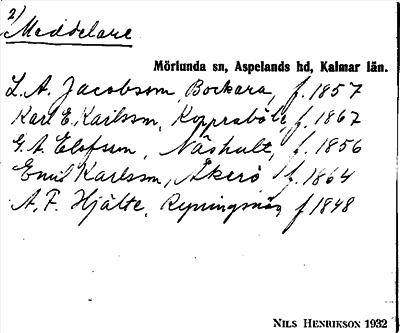 2)
Meddelare
Mörlunda sn, Aspelands hd, Kalmar län.
L. A. Jacobsson, Bockara, f. 1857
Karl E. Karlsson, f. 1867
G. A. Elofsson, Näshult, f. 1856
Emil Karlsson, Åkerö, f. 1864
A. F. Hjälte, Ryningsnäs, f. 1848
NILS HENRIKSON 1932